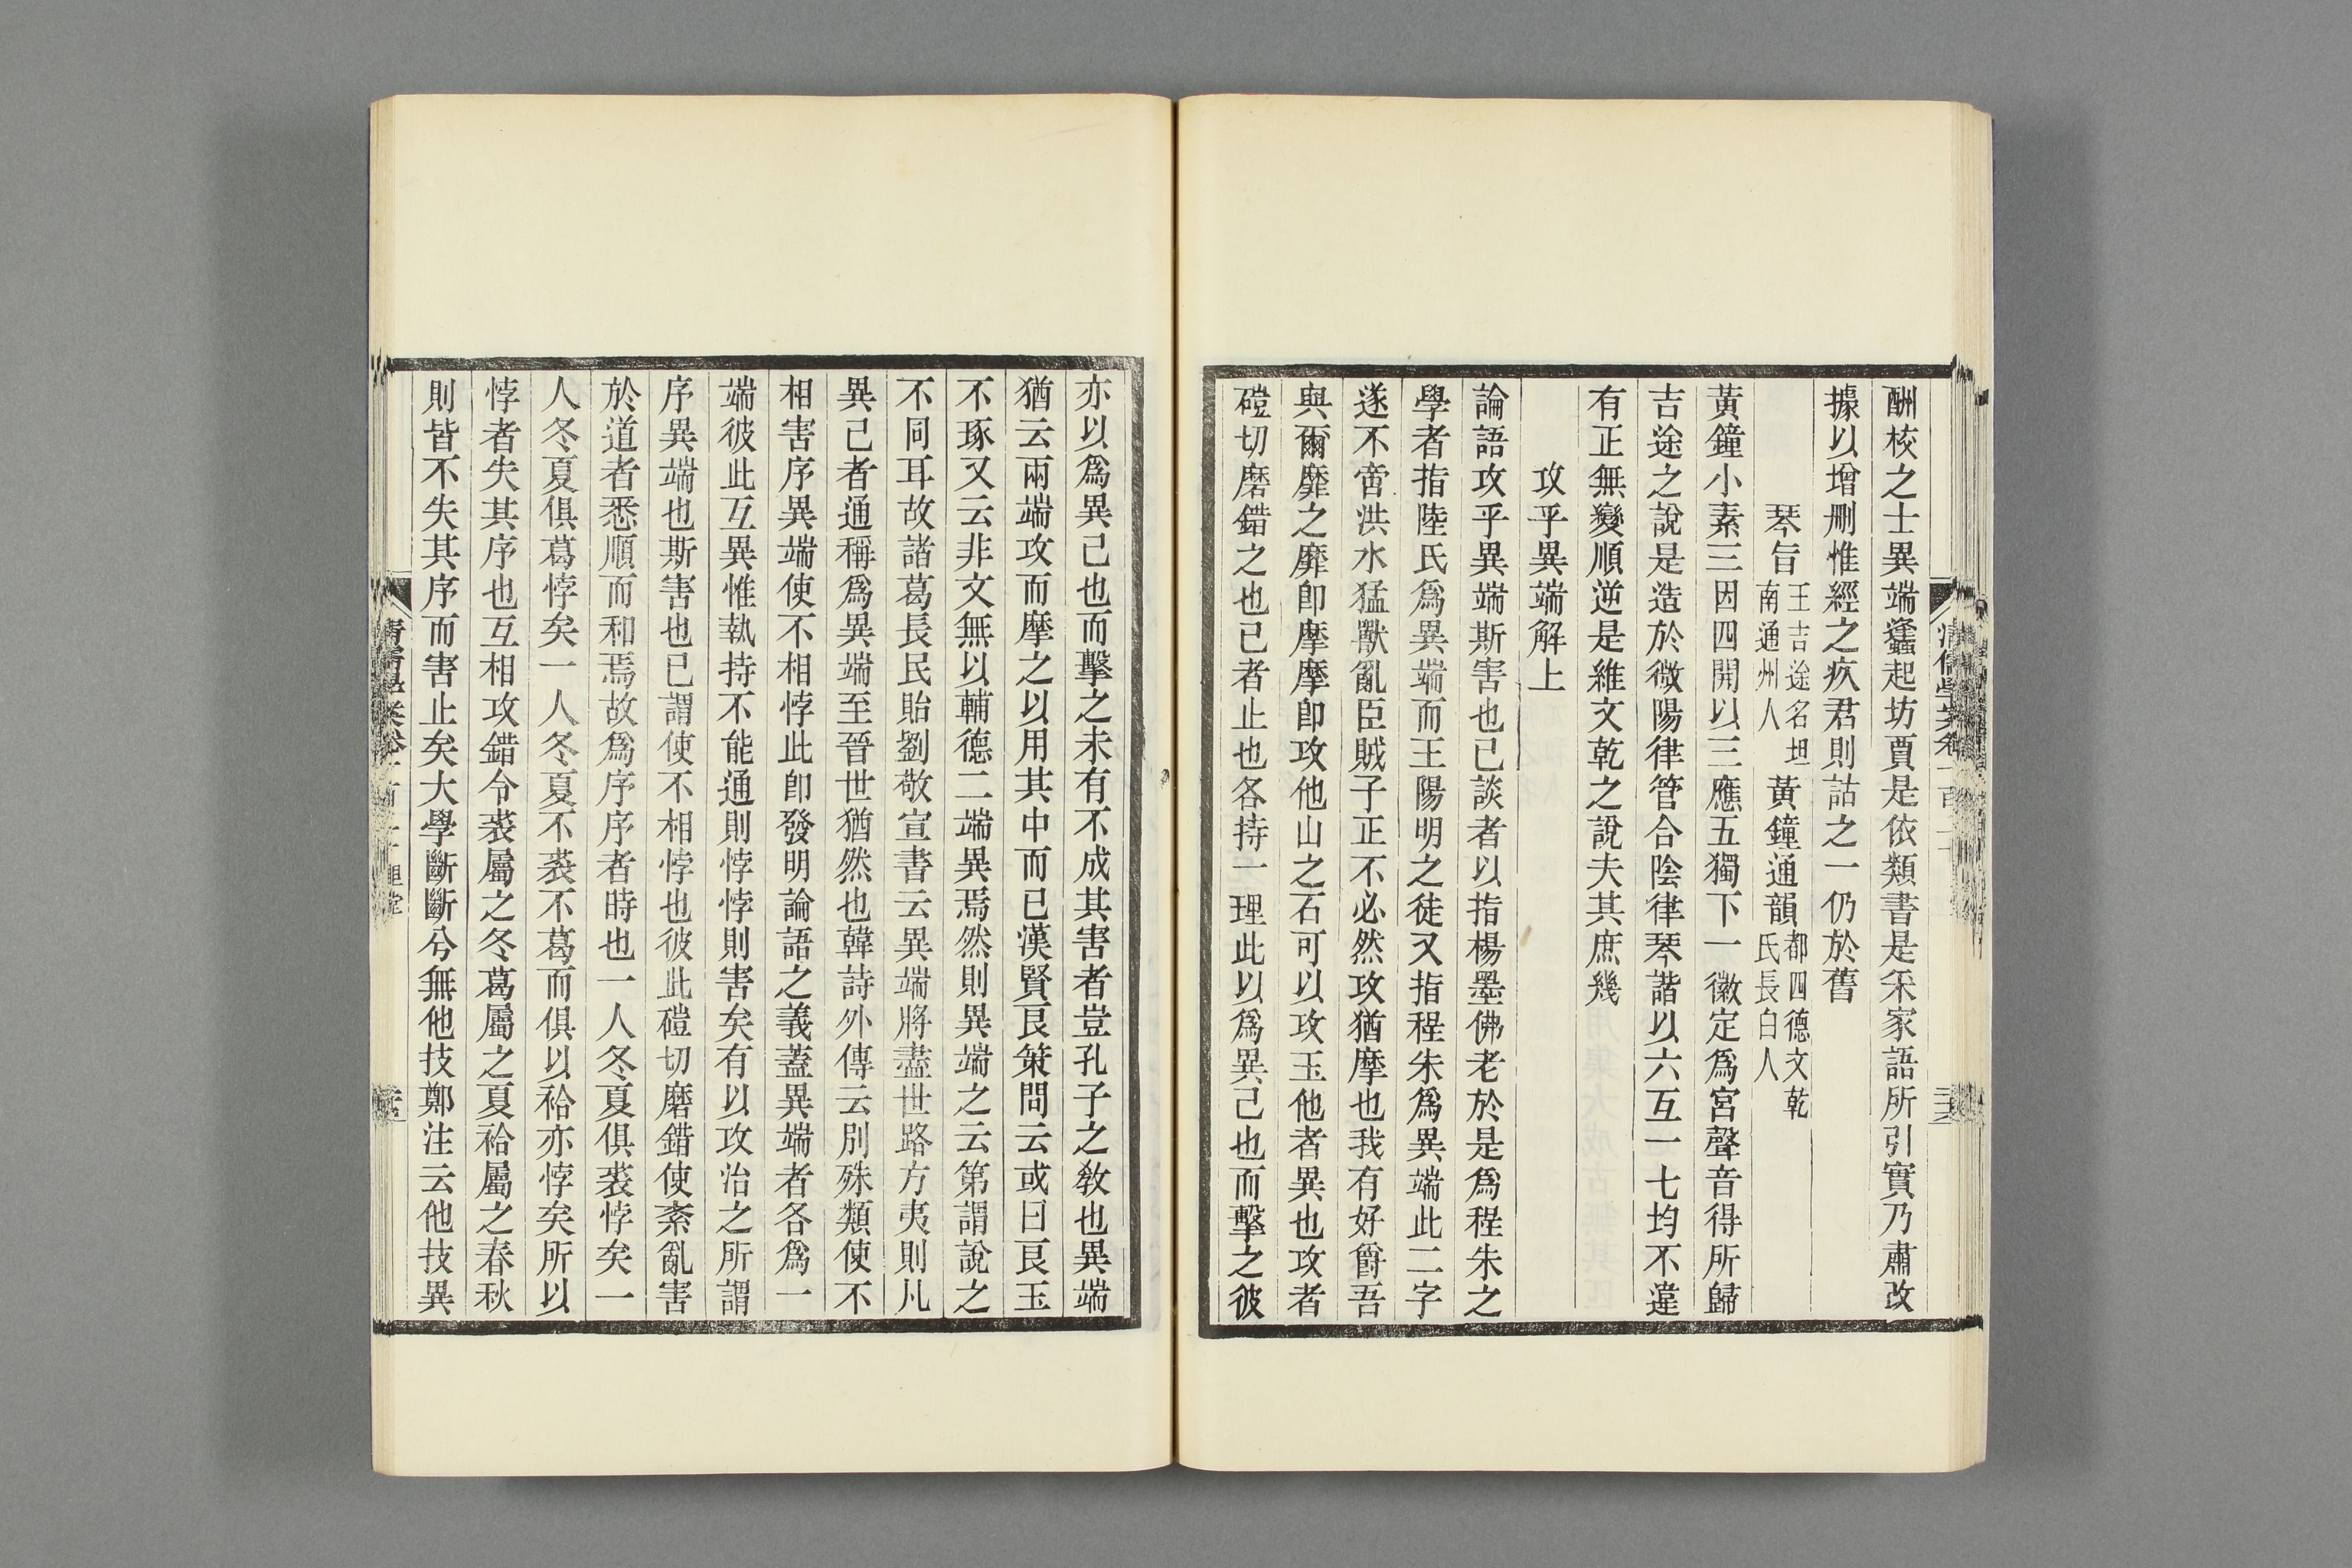 酬校之士異端蠭起坊賈是依類書是采家語所引實乃肅改
據以增刪惟經之疚君則詁之一仍於舊
琴旨王吉途名坦南通州人黃鐘通韻都四德文乾氏長白人
黃鐘小素三因四開以三應五獨下一徽定爲宮聲音得所歸
吉途之說是造於微陽律管合陰律琴諧以六互一七均不違
有正無變順逆是維文乾之說夫其庶幾
攻乎異端解上
論語攻乎異端斯害也已談者以指楊墨佛老於是爲程朱之
學者指陸氏爲異端而王陽明之徒又指程朱爲異端此二字
遂不啻洪水猛獸亂臣賊子正不必然攻猶摩也我有好爵吾
與爾靡之靡卽摩摩卽攻他山之石可以攻玉他者異也攻者
磑切磨錯之也已者止也各持一理此以爲異己也而擊之彼
亦以爲異己也而擊之未有不成其害者豈孔子之敎也異端
猶云兩端攻而摩之以用其中而已漢賢良策問云或曰良玉
不琢又云非文無以輔德二端異焉然則異端之云第謂說之
不同耳故諸葛長民貽劉敬宣書云異端將盡世路方夷則凡
異己者通稱爲異端至晉世猶然也韓詩外傳云別殊類使不
相害序異端使不相悖此卽發明論語之義蓋異端者各爲一
端彼此互異惟執持不能通則悖悖則害矣有以攻治之所謂
序異端也斯害也已謂使不相悖也彼此磑切磨錯使紊亂害
於道者悉順而和焉故爲序序者時也一人冬夏俱裘悖矣一
人冬夏俱葛悖矣一人冬夏不裘不葛而俱以袷亦悖矣所以
悖者失其序也互相攻錯令裘屬之冬葛屬之夏袷屬之春秋
則皆不失其序而害止矣大學斷斷兮無他技鄭注云他技異